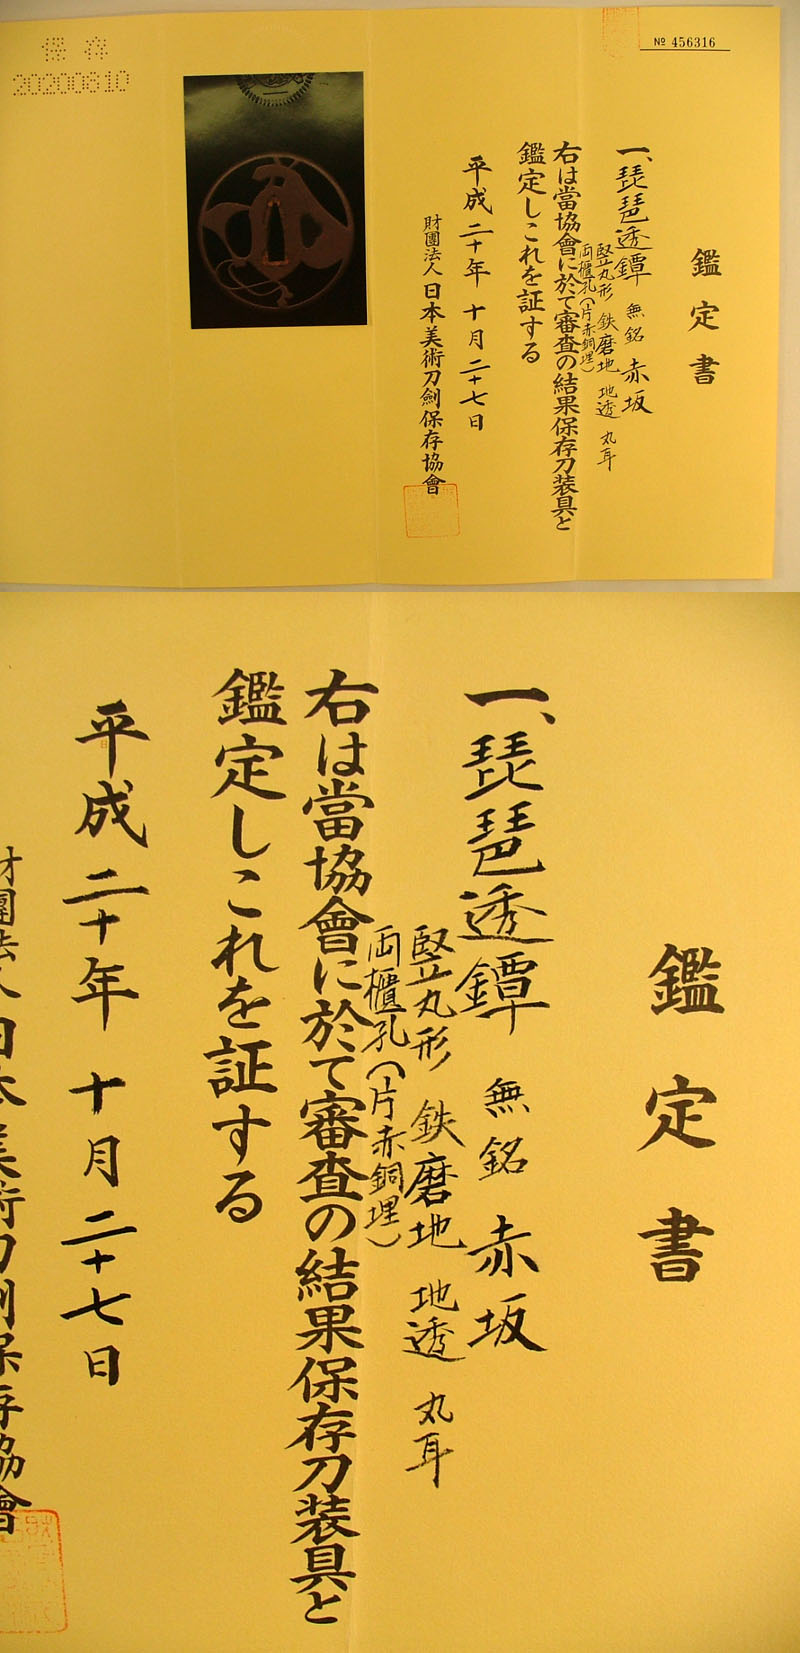 保存
20200810
№ 456316
鑑定書
一、琵琶透鐔 無銘 赤坂
竪丸形 鉄磨地 地透 丸耳
両櫃孔(片赤銅埋)
右は當協會に於て審査の結果保存刀装具と
鑑定しこれを証する
平成二十年 十月二十七日
財團法人 日本美術刀劍保存協會
鑑定書
一、琵琶透鐔 無銘 赤坂
竪丸形 鉄磨地 地透 丸耳
両櫃孔(片赤銅埋)
右は當協會に於て審査の結果保存刀装具と
鑑定しこれを証する
平成二十年 十月二十七日
財團法人 日本美術刀劍保存協會